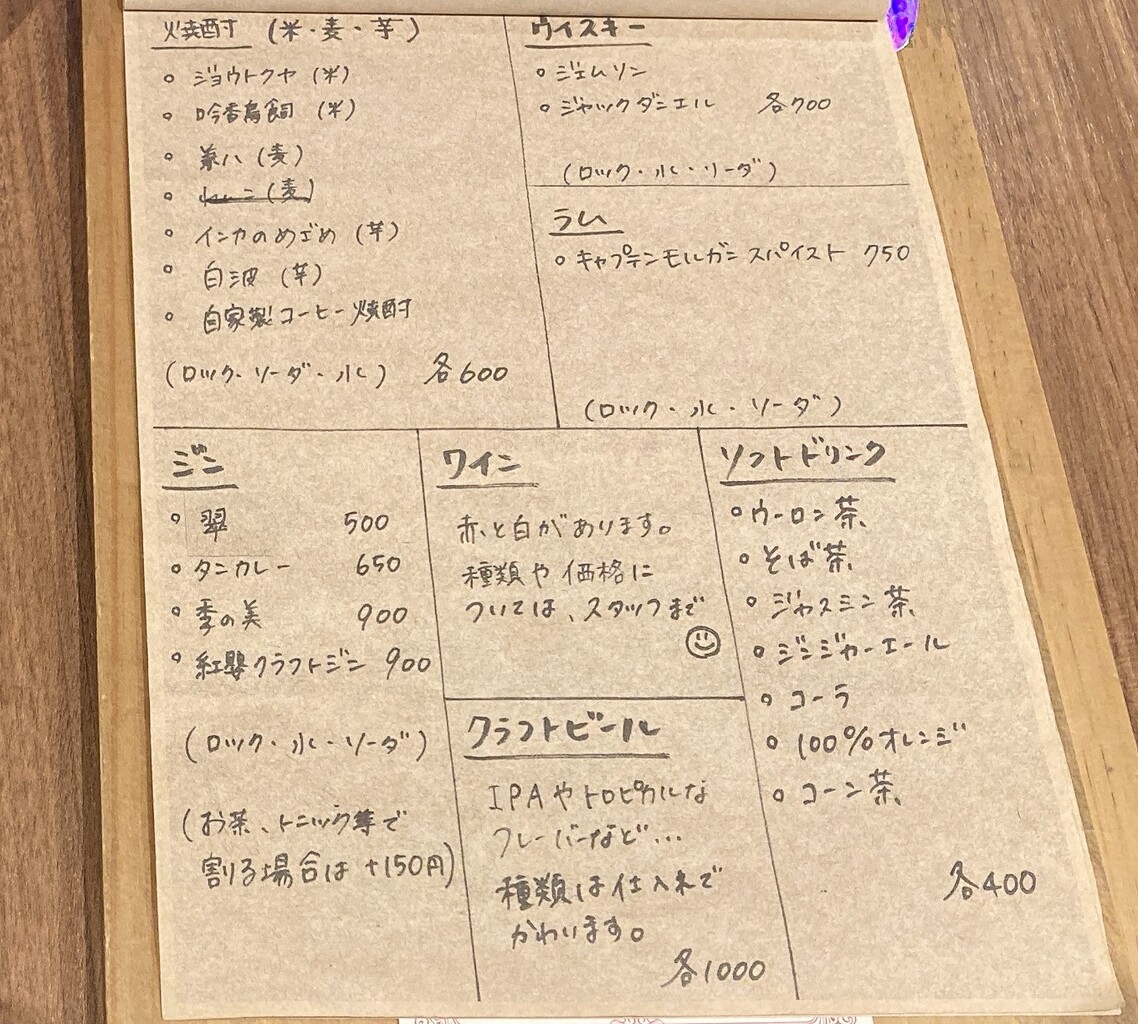 焼酎 (米・麦・芋)
○ ジョウトクヤ (米)
○ 吟香鳥飼 (米)
○ 兼八 (麦)
○ (麦)
○ インカのめざめ (芋)
○ 白波 (芋)
○ 自家製コーヒー焼酎
(ロック・ソーダ・水) 各600
ウィスキー
○ ジェムソン
○ ジャックダニエル 各700
(ロック・水・ソーダ)
ラム
○ キャプテンモルガン スパイスト 750
(ロック・水・ソーダ)
ジン
○ 翠 500
○ タンカレー 650
○ 季の美 900
○ 紅櫻クラフトジン 900
(ロック・水・ソーダ)
(お茶、トニック等で
割る場合は +150円)
ワイン
赤と白があります。
種類や価格に
ついては、スタッフまで
クラフトビール
IPAやトロピカルな
フレーバーなど...
種類は仕入れで
かわります。
各1000
ソフトドリンク
○ ウーロン茶
○ そば茶
○ ジャスミン茶
○ ジンジャーエール
○ コーラ
○ 100%オレンジ
○ コーン茶
各400